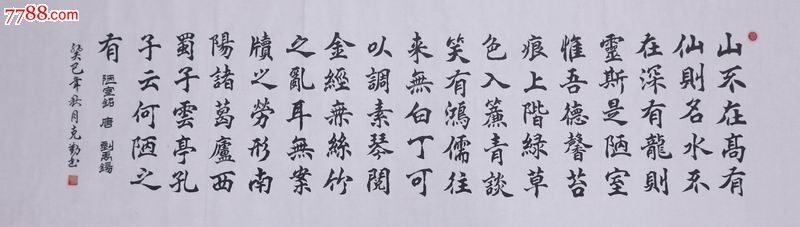 7788.com
山不在高有
仙則名水不
在深有龍則
靈斯是陋室
惟吾德馨苔
痕上階綠草
色入簾青談
笑有鴻儒往
来無白丁可
以調素琴閱
金經無絲竹
之亂耳無案
牘之勞形南
陽諸葛廬西
蜀子雲亭孔
子云何陋之
有 陋室銘 唐 劉禹錫
癸巳年秋月克勤书